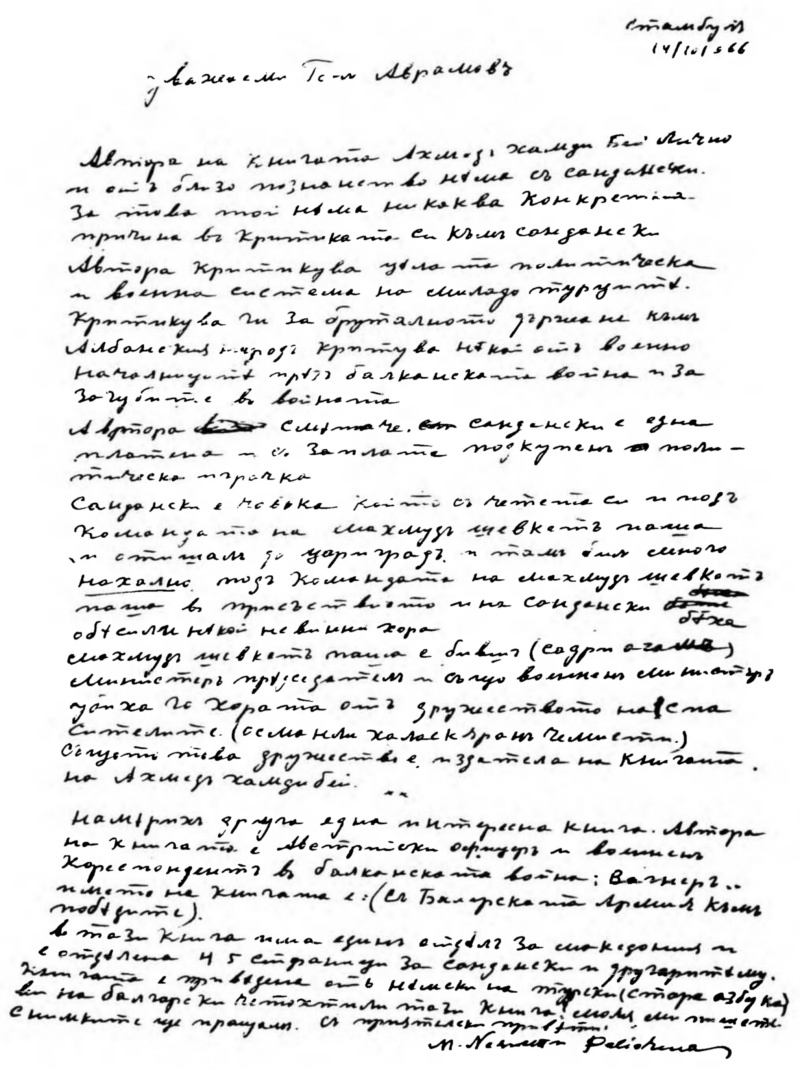 Стамбулъ
14/10/966
Уважаеми Г-н Аврамовъ
Автора на книгата Ахмедъ Хамди Бей Лично
и отъ близо познанство нѣма съ сандански.
За това той нѣма никаква Конкретна
причина въ критиката си към сандански
Автора критикува цѣлата политическа
и военна система на младо турцитѣ.
Критикува ги за бруталното държане към
Албанския народъ критува нѣкой отъ военно
началницитѣ прѣзъ балканската война и за
загубите въ войната
Автора смѣтаче. сандански е една
платена и съ Заплата подкупенъ поли-
тическа играчка
Сандански е човѣка който съ четета си и подъ
командата на махмудъ шевкетъ паша
и отишалъ до цариградъ и тамъ билъ много
нахално подъ командата на махмудъ шевкетъ
паша въ присъствието и на сандански
бѣха
обѣсили нѣкой невинни хора
махмудъ шевкетъ паша е бившъ (садри азамъ)
министеръ прѣдседателъ и също военненъ министъръ
убиха го хората отъ дружеството на спа
сителите. (османли халаскяранъ Чемиети.)
Същото това дружество е издателя на книгата
на Ахмедъ хамди бей.
намѣрихъ друга една интересна книга. Автора
на книгата е Австриски офицеръ и военненъ
кореспондентъ въ балканската война; Вагнеръ..
името на книгата е: (съ Балгарската Армия към
побѣдите).
въ тази книга има единъ отдѣлъ за македония и
е отдѣлена 4 5 страници за сандански и другаритѣму.
книгата е привѣдена отъ нѣмски на турски (стара азбука)
ви на балгарски четохтили тази книга, моля ми пишете
снимките ще пращамъ. съ приятелски привѣти.
М.